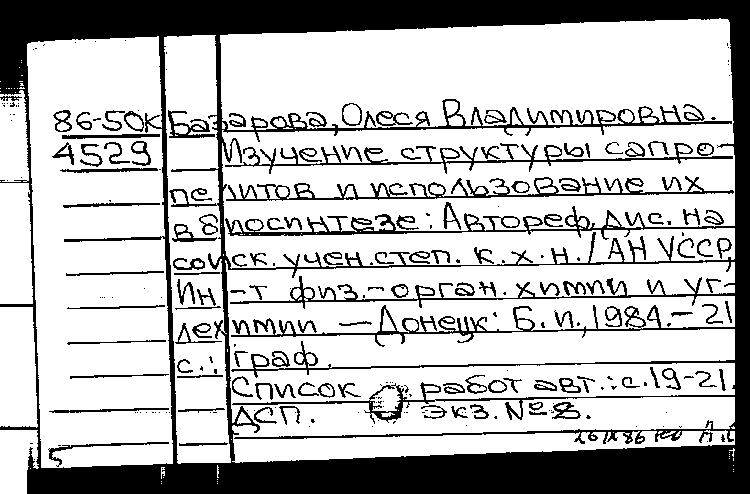 86-50К Базарова, Олеся Владимировна.
4529 Изучение структуры сапро-
пелитов и использование их
в биосинтезе: Автореф. дис. на
соиск. учен. степ. к. х. н. / АН УССР,
Ин-т физ.-орган. химии и уг-
лехимии. — Донецк: Б. и., 1984. - 21
с.: граф.
Список работ авт.: с. 19-21.
ДСП. экз. № 8.
26 IX 86
5